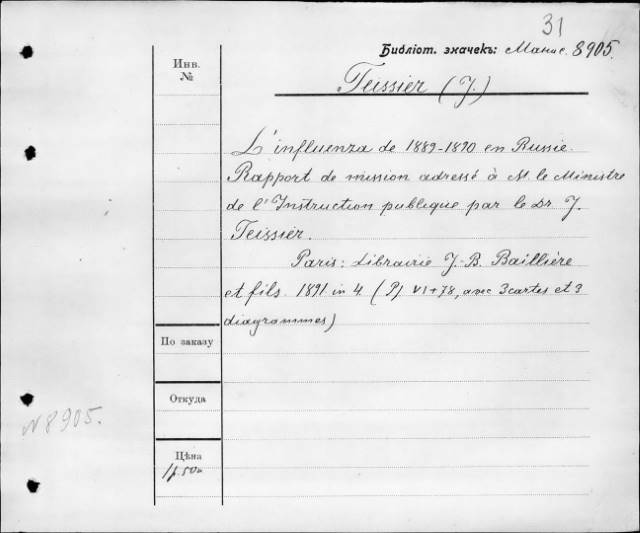 31
Библіот. значекъ: 8905.
Инв.
№
Teissier (J.)
L'influenza de 1889-1890 en Russie.
Rapport de mission adressé à M. le Ministre
de l'Instruction publique par le Dr J.
Teissier.
Paris: Librairie J.-B. Baillière
et fils. 1891. in 4. (Pj. VI+78, avec 3 cartes et 3
diagrammes)
По заказу
Откуда
N 8905.
Цѣна